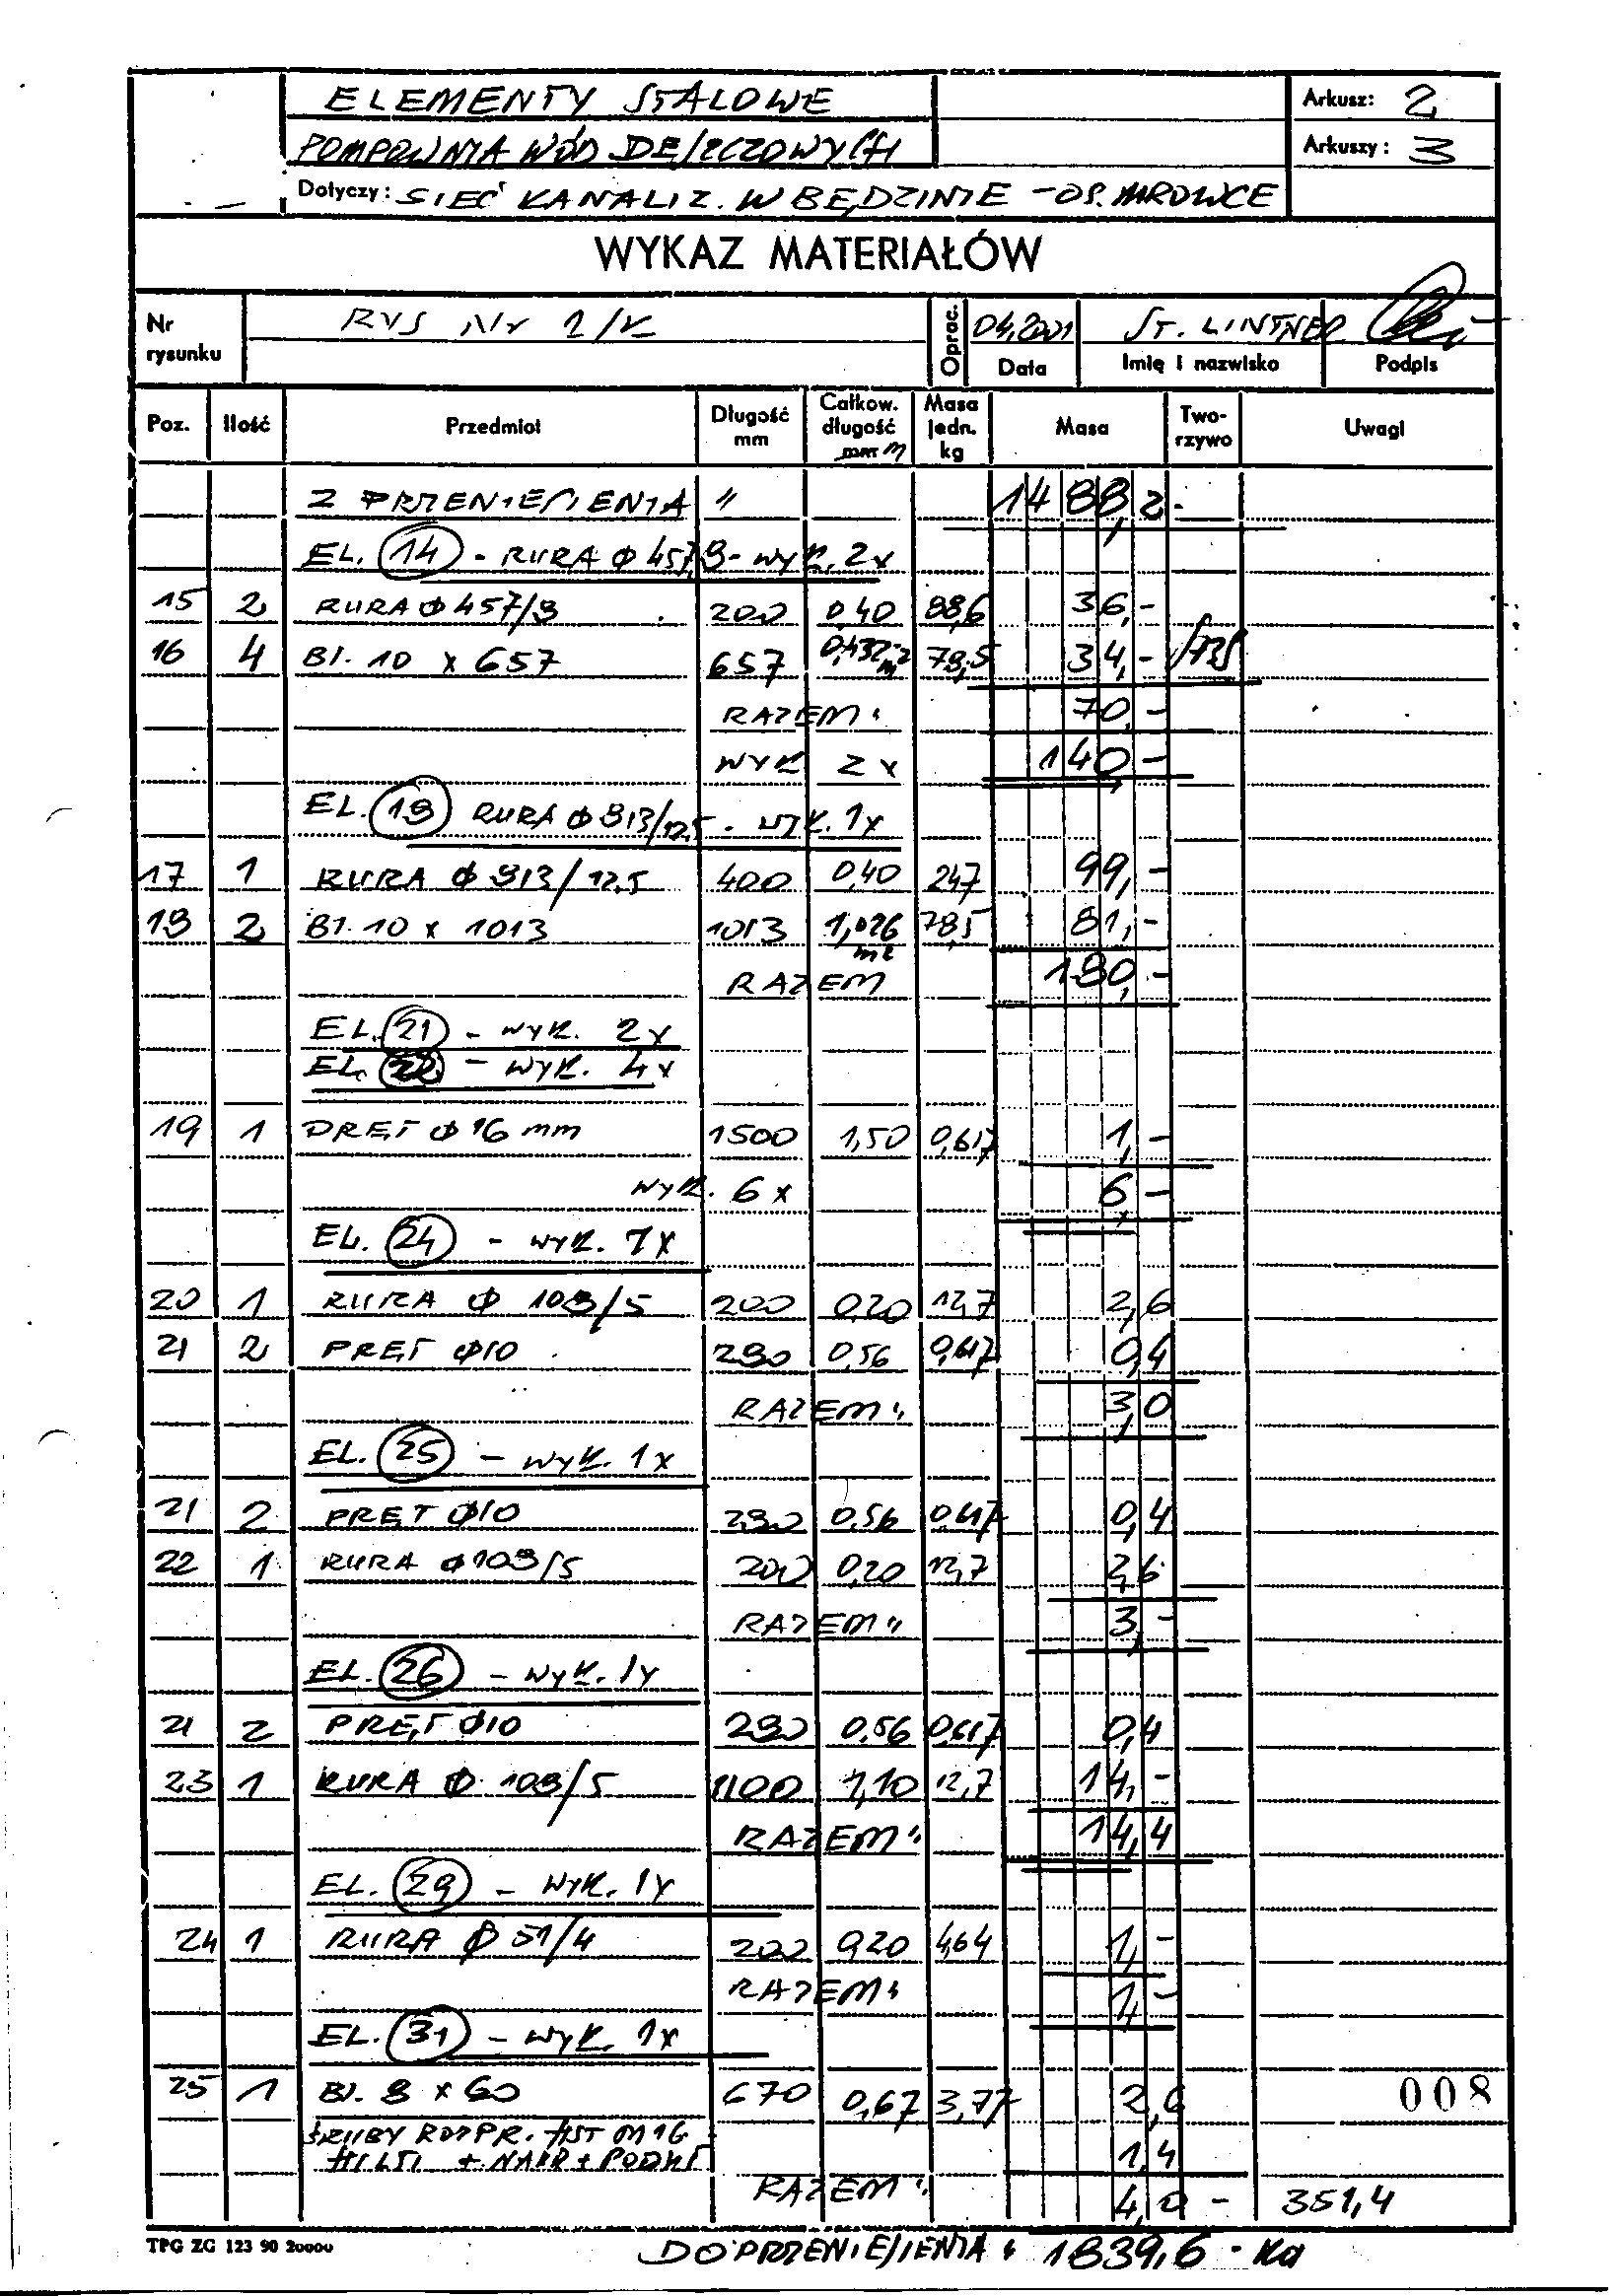 ELEMENTY STALOWE
POMPOWNIA WÓD DESZCZOWYCH
Dotyczy: SIEĆ KANALIZ. W BĘDZINIE - OS. MROWCE
Arkusz: 2
Arkuszy: 3
WYKAZ MATERIAŁÓW
Nr rysunku RYS Nr 1/K Oprac. 04.2001 ST. LINTNER
Data Imię i nazwisko Podpis
Poz. Ilość Przedmiot Długość mm Całkow. długość m Masa jedn. kg Masa Tworzywo Uwagi
Z PRZENIESIENIA " 1488,2-
EL. 14 - RURA Ø 457/8 - WYK. 2x
15 2 RURA Ø 457/8 200 0,40 88,6 36,-
16 4 Bl. 10 x 657 657 0,432 m2 78,5 34,-
RAZEM: 70,-
WYK 2x 140,-
EL. 18 RURA Ø 813/12,5 - WYK. 1x
17 1 RURA Ø 813/12,5 400 0,40 247 99,-
18 2 Bl. 10 x 1013 1013 1,026 m2 78,5 81,-
RAZEM 180,-
EL. 21 - WYK. 2x
EL. 22 - WYK. 4x
19 1 PRĘT Ø 16 mm 1500 1,50 0,617 1,-
WYK. 6x 6,-
EL. 24 - WYK. 1x
20 1 RURA Ø 108/5 200 0,20 12,7 2,6
21 2 PRĘT Ø10 280 0,56 0,617 0,4
RAZEM: 3,0
EL. 25 - WYK. 1x
21 2 PRĘT Ø10 280 0,56 0,617 0,4
22 1 RURA Ø108/5 200 0,20 12,7 2,6
RAZEM: 3,-
EL. 26 - WYK. 1x
21 2 PRĘT Ø10 280 0,56 0,617 0,4
23 1 RURA Ø 108/5 1100 1,10 12,7 14,-
RAZEM: 14,4
EL. 29 - WYK. 1x
24 1 RURA Ø 51/4 200 0,20 4,64 1,-
RAZEM: 1,-
EL. 31 - WYK. 1x
25 1 Bl. 8 x 60 670 0,67 3,77 2,6
008
ŚRUBY ROZPR. HST M16
HILTI + NAKR + PODKŁ 1,4
RAZEM: 4,0 - 351,4
TPG ZG 123 90 20000
DO PRZENIESIENIA: 1839,6 - KG